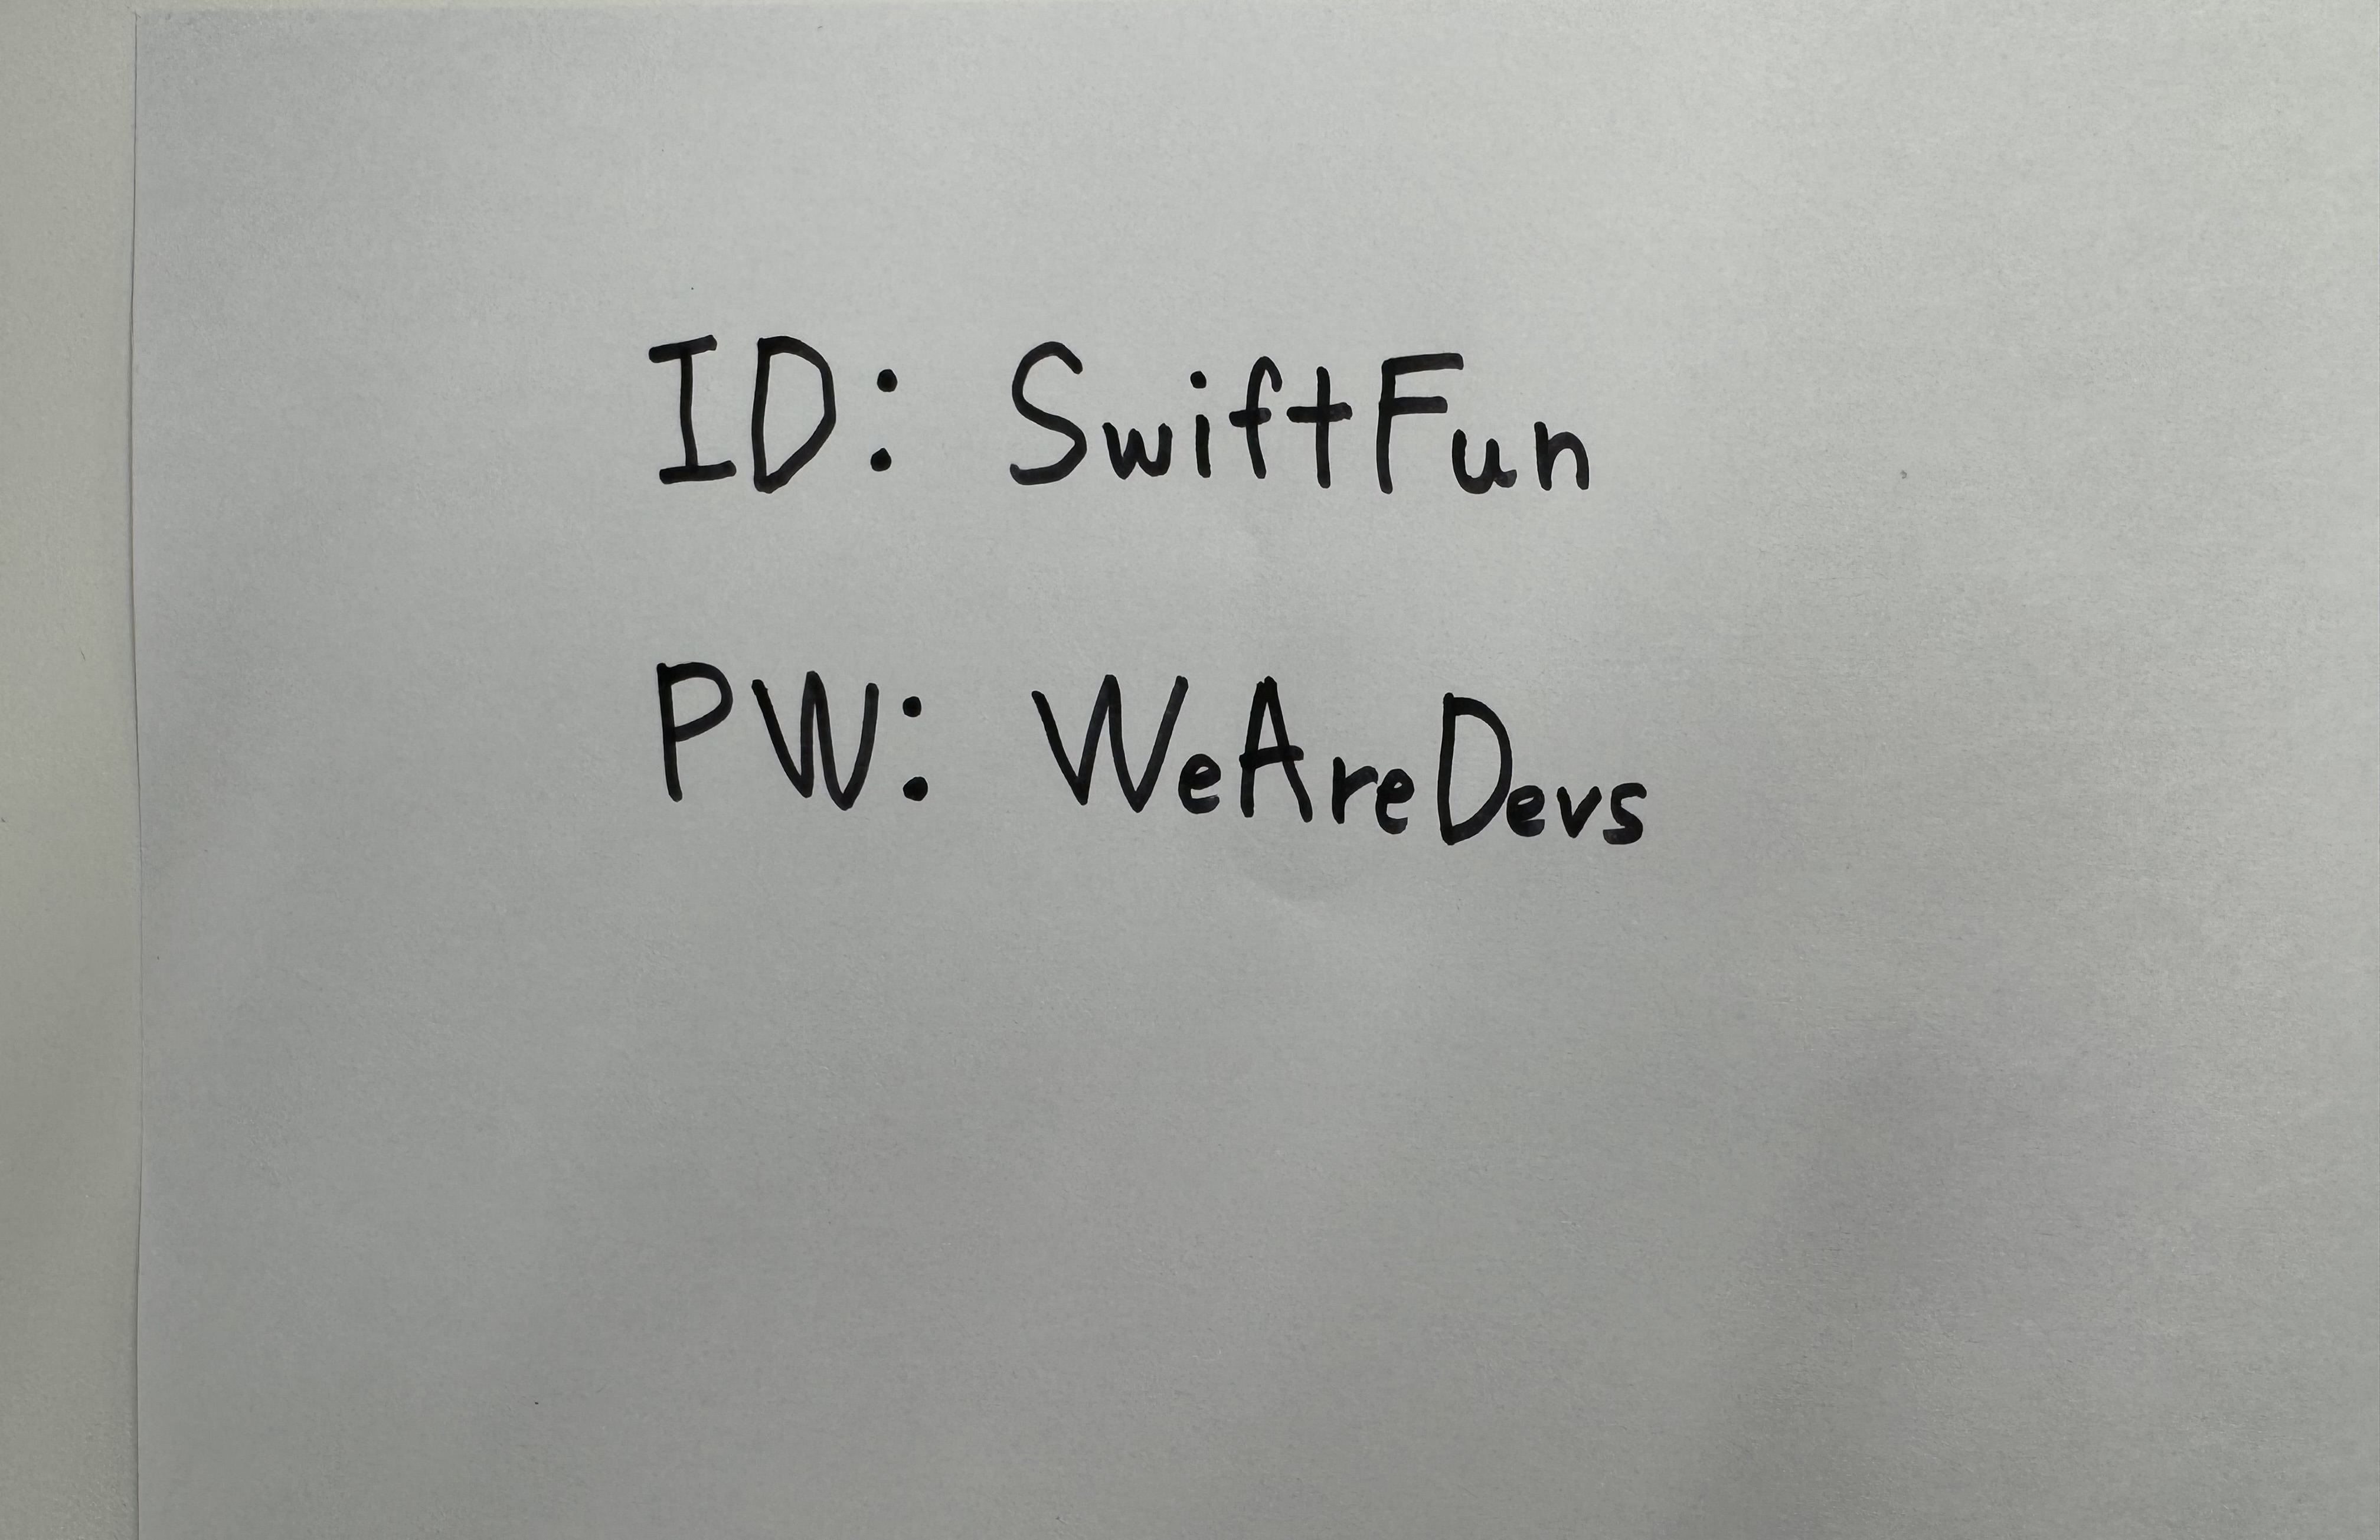 ID: SwiftFun
PW: WeAreDevs